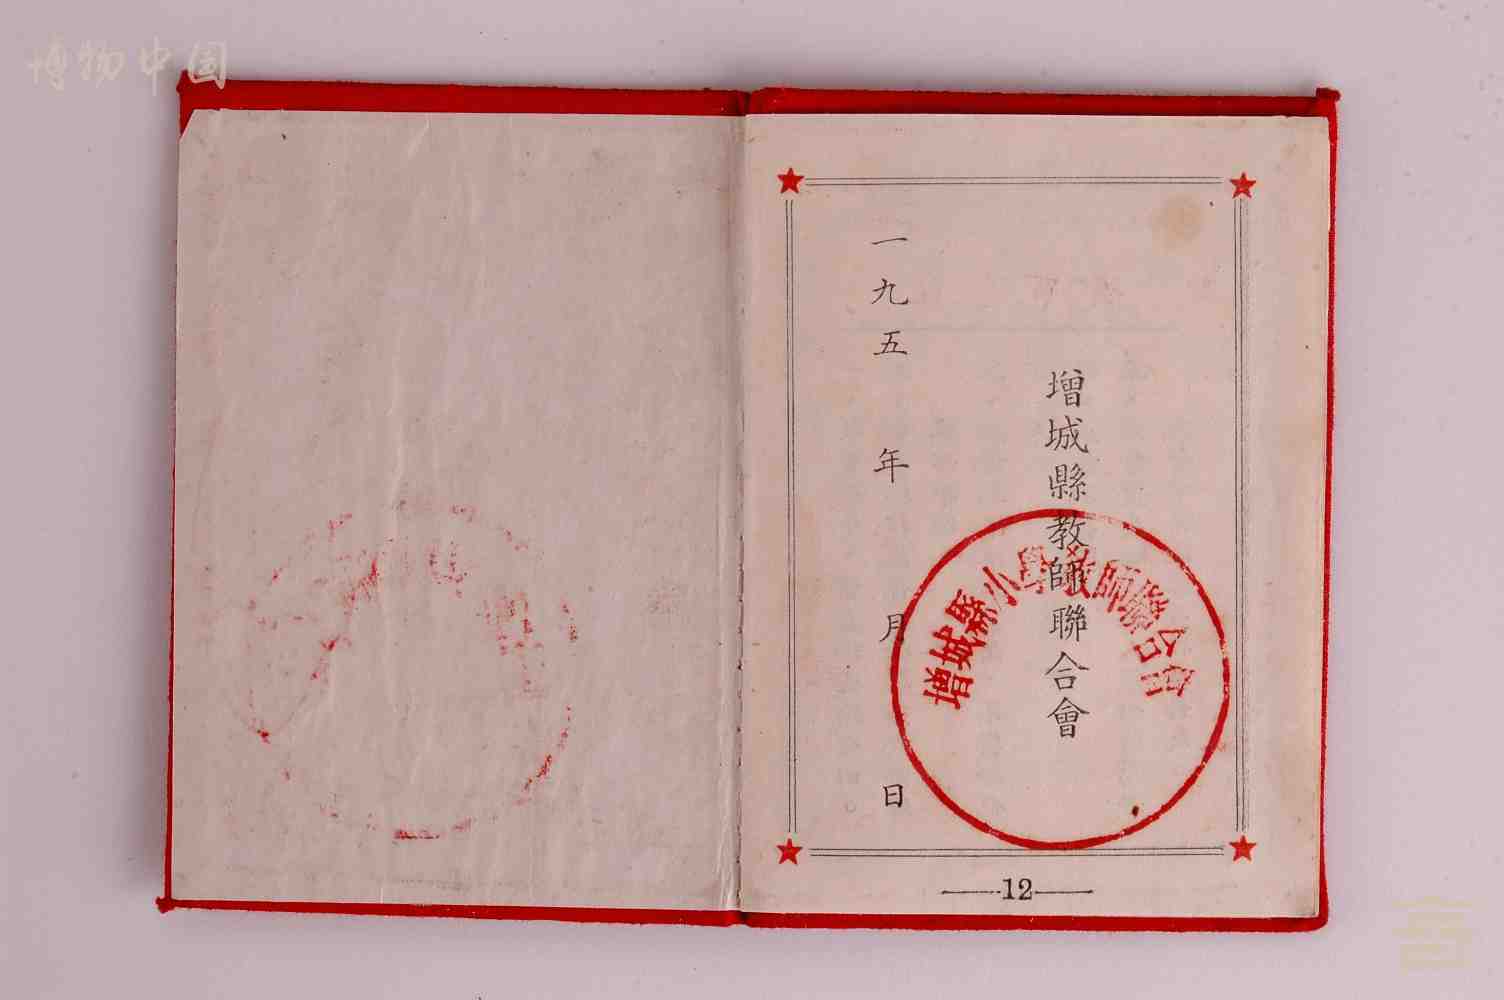 博物中国
增城縣教師聯合會
一九五 年 月 日
增城縣小學教師聯合會
12